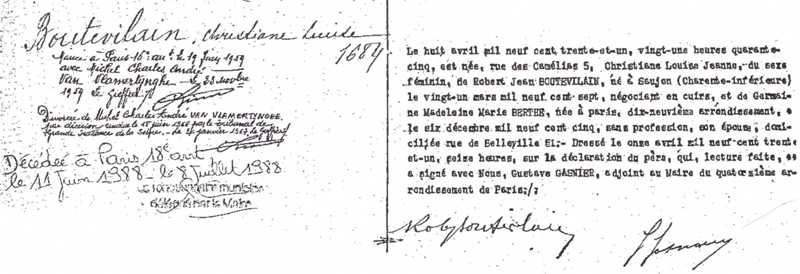 Boutevilain, Christiane Louise
1684
Mariée à Paris 16e arrt le 19 juin 1959
avec Michel Charles André
Van Vlamertynghe - 23 novbre
1959 Le Greffier
Divorcée de Michel Charles André VAN VLAMERTYNGHE,
par décision rendue le 15 juin 1966 par le Tribunal de
Grande Instance de la Seine. - Le 24 janvier 1967, Le Greffier
Décédée à Paris 18e arrt
le 11 juin 1988 - le 8 juillet 1988
Le huit avril mil neuf cent trente-et-un, vingt-une heures quarante-
cinq, est née, rue des Camélias 5, Christiane Louise Jeanne, du sexe
féminin, de Robert Jean BOUTEVILAIN, né à Saujon (Charente-inférieure)
le vingt-un mars mil neuf cent sept, négociant en cuirs, et de Germai-
ne Madeleine Marie BERTHE, née à paris, dix-neuvième arrondissement,
le six décembre mil neuf cent cinq, sans profession, son épouse, domi-
ciliés rue de Belleville 51;- Dressé le onze avril mil neuf cent trente
et-un, seize heures, sur la déclaration du père, qui, lecture faite,
a signé avec Nous, Gustave GASNIER, adjoint au Maire du quatorzième ar-
rondissement de Paris;/;
RobBoutevilain